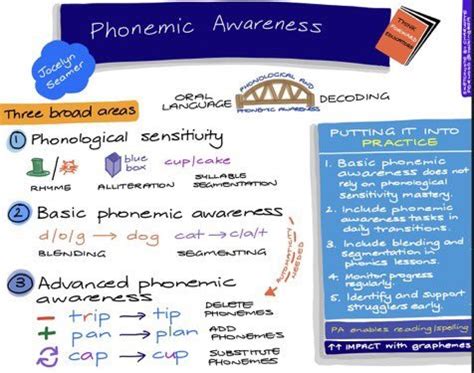 Phonemic Awareness
Jocelyn
Seamer
THINK
FORWARD
EDUCATORS
ORAL
LANGUAGE
PHONOLOGICAL AND
PHONEMIC AWARENESS
DECODING
Three broad areas
1 Phonological sensitivity
RHYME
blue
box
ALLITERATION
cup/cake
SYLLABLE
SEGMENTATION
2 Basic phonemic awareness
d/o/g → dog
BLENDING
cat → c/a/t
SEGMENTING
AUTOMATICITY
NEEDED
3 Advanced phonemic
awareness
- trip → tip
DELETE
PHONEMES
+ pan → plan
ADD
PHONEMES
cap → cup
SUBSTITUTE
PHONEMES
PUTTING IT INTO
PRACTICE
1. Basic phonemic
awareness does not
rely on phonological
sensitivity mastery.
2. Include phonemic
awareness tasks in
daily transitions.
3. Include blending and
segmentation in
phonics lessons.
4. Monitor progress
regularly.
5. Identify and support
strugglers early.
PA enables reading/spelling
↑↑ IMPACT with graphemes